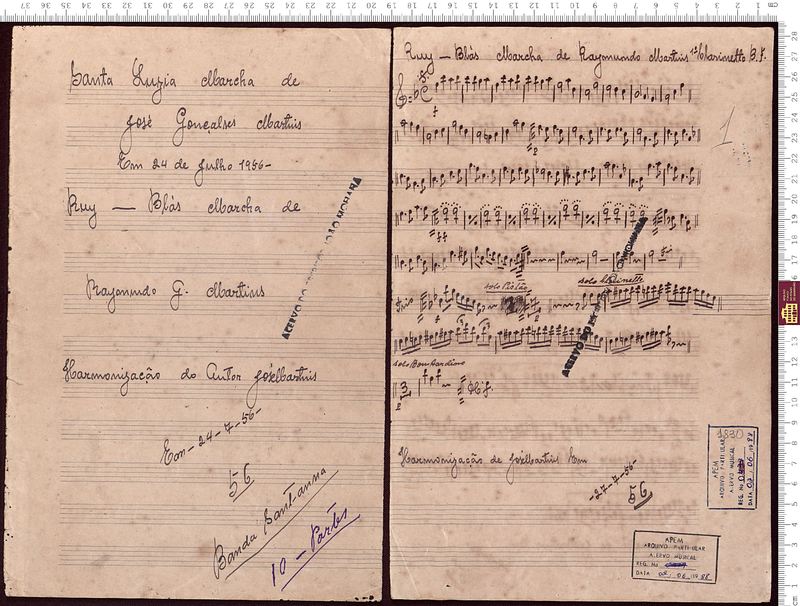 Santa Luzia Marcha de
José Gonçalves Martins
Em 24 de Julho 1956-
Ruy — Blás Marcha de
Raymundo G. Martins
Harmonização do Autor JoséMartins
Em-24-7-56-
56
Banda Sant'anna
10 - Partes
Ruy — Blás Marcha de Raymundo Martins 1º Clarinetto B.f.
1
solo Pistão
solo Clarinetto
trio
solo Bombardino
Harmonização de JoséMartins Em
-27-7-56-
56
1830
APEM
ARQUIVO PARTICULAR
ACERVO MUSICAL
REG. No
DATA 02, 06, 1988
APEM
ARQUIVO PARTICULAR
ACERVO MUSICAL
REG. No
DATA 02, 06, 1988